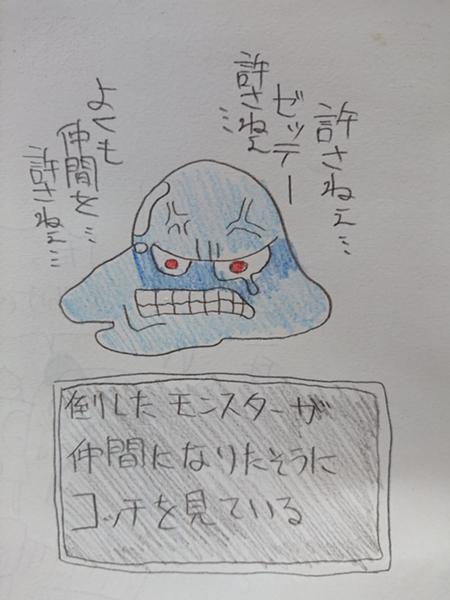 許さねぇ…
ゼッテー
許さねぇ…
よくも
仲間を…
許さねぇ…
倒したモンスターが
仲間になりたそうに
コッチを見ている